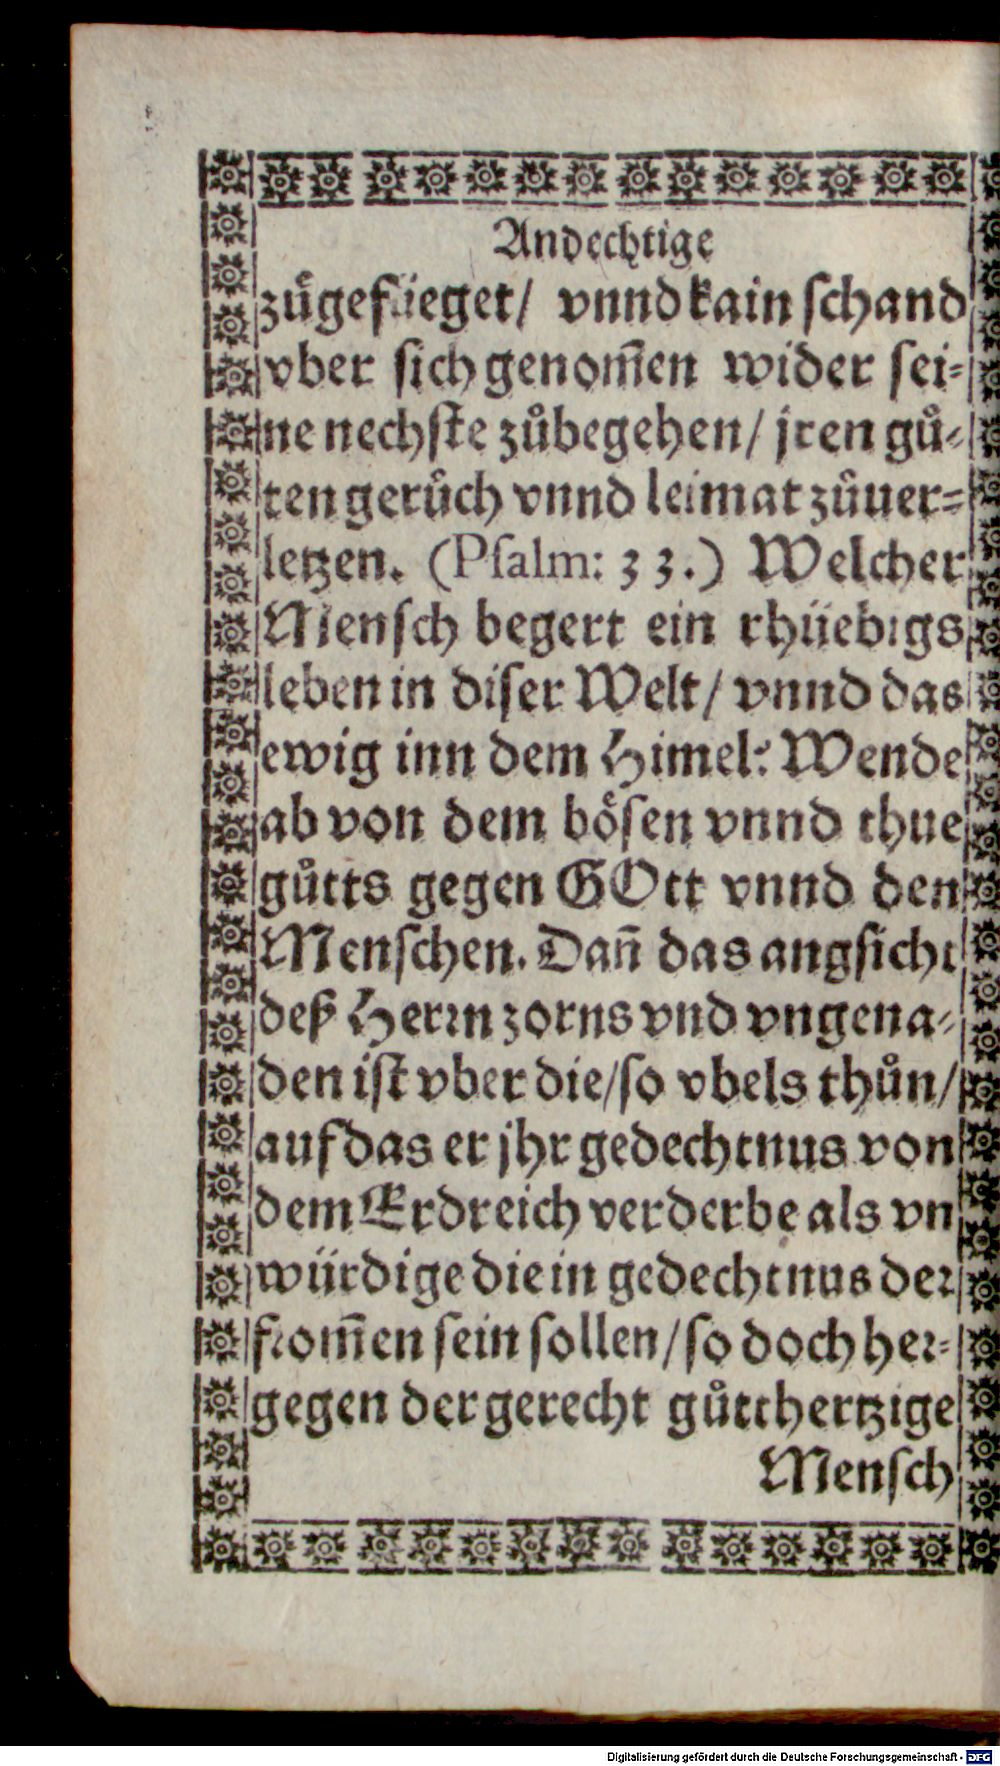 Andechtige
zůgefüeget/ vnnd kain schand
vber sich genom̄en wider sei⸗
ne nechste zůbegehen/ jren gů⸗
ten gerůch vnnd leimat zůuer⸗
letzen. (Psalm: 33.) Welcher
Mensch begert ein rhüebigs
leben in diser Welt/ vnnd das
ewig inn dem Himel: Wende
ab von dem bösen vnnd thue
gůtts gegen GOtt vnnd den
Menschen. Dan̄ das angsicht
deß Herrn zorns vnd vngena⸗
den ist vber die/so vbels thůn/
auf das er jhr gedechtnus von
dem Erdreich verderbe als vn
würdige die in gedechtnus der
from̄en sein sollen/so doch her⸗
gegen der gerecht gůtthertzige
Mensch
Digitalisierung gefördert durch die Deutsche Forschungsgemeinschaft - DFG